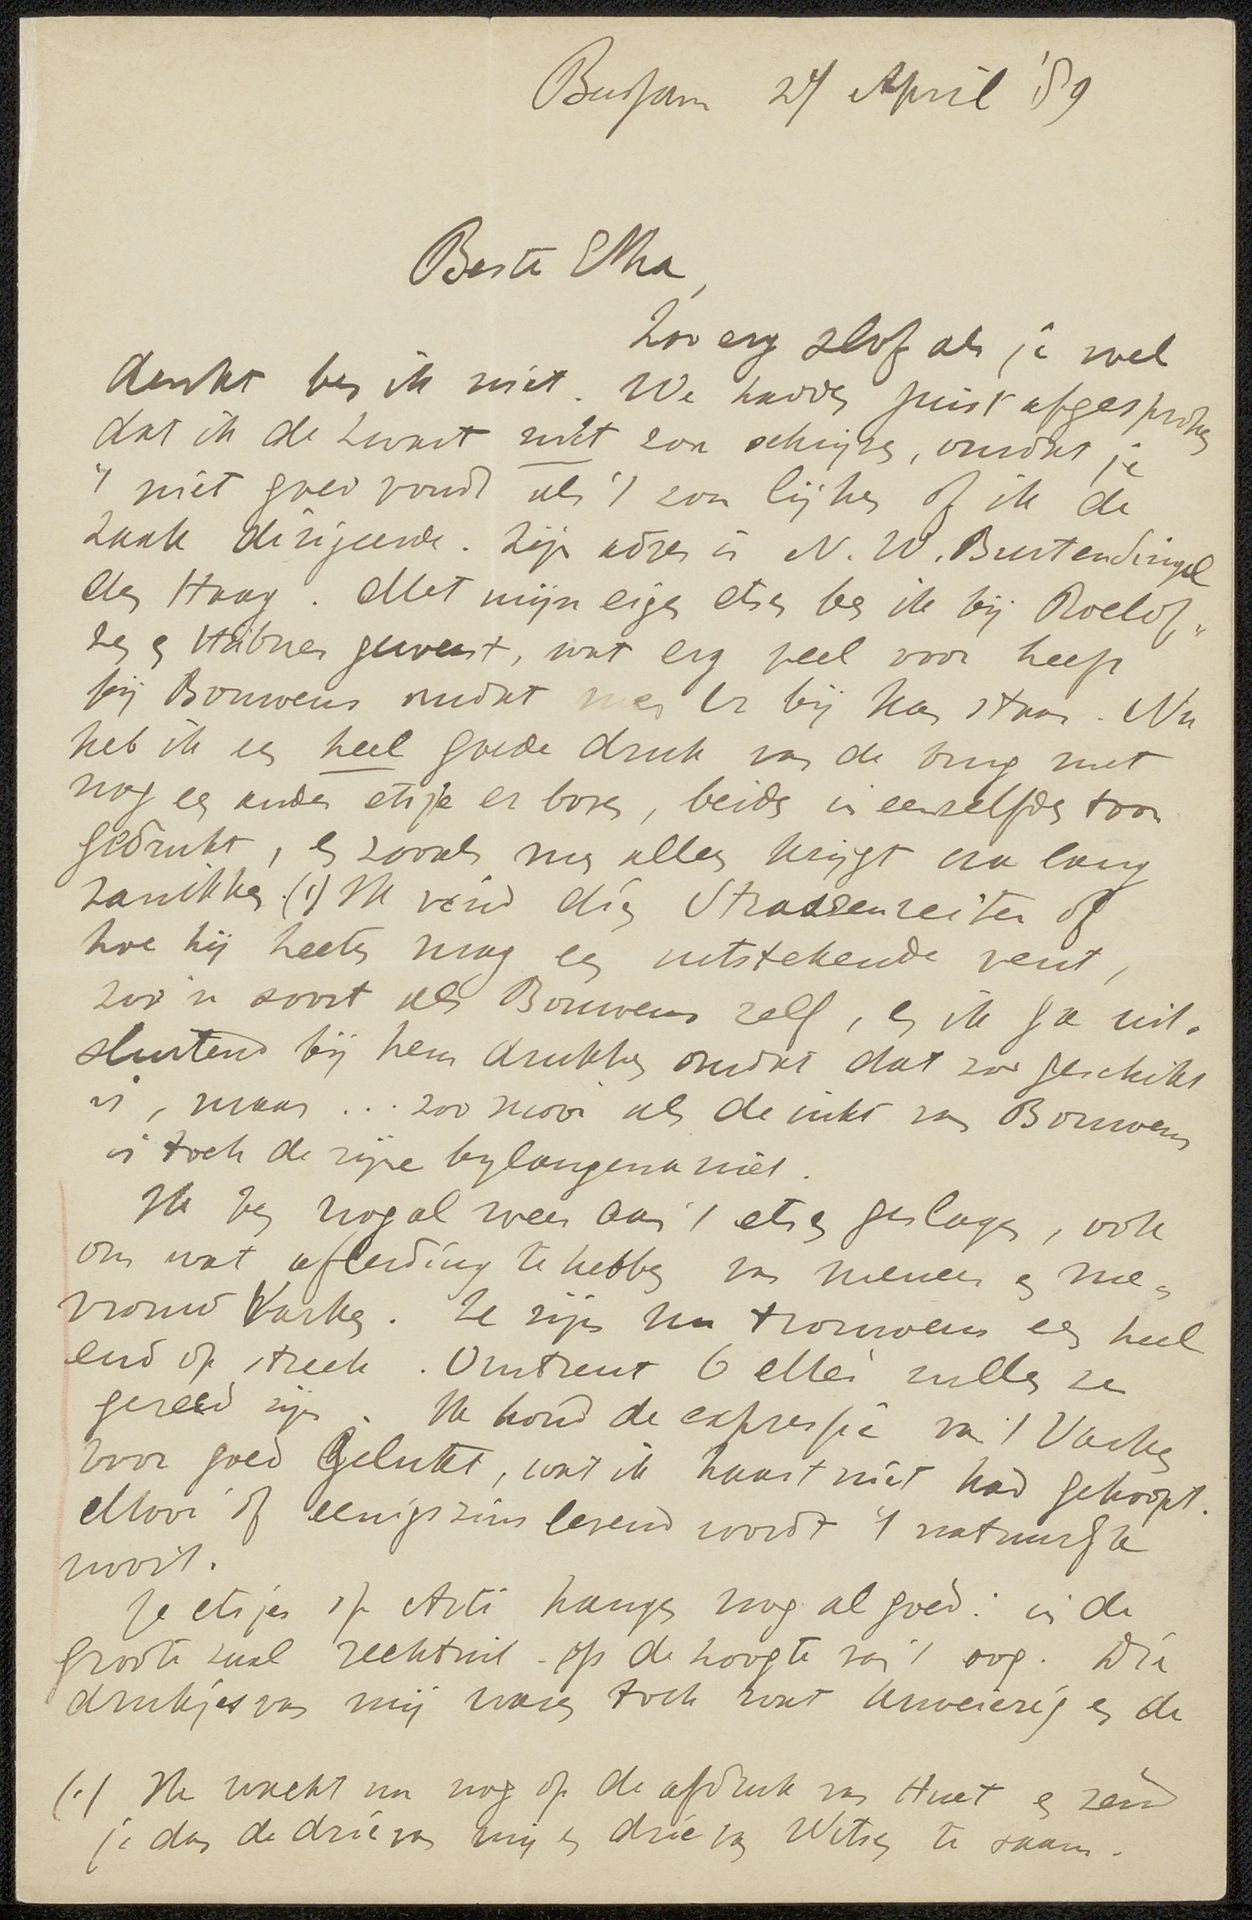 Bussum 24 April '89
Beste Etha,
Zoo erg slof als je wel
denkt ben ik niet. We hadden juist afgesproken
dat ik de Zwart niet zou schrijven, omdat je
't niet goed vondt als 't zou lijken of ik de
zaak dirigeerde. Zijn adres is N. W. Buitensingel
den Haag. Met mijn eigen etsen ben ik bij Roelof-
zen en Hübner geweest, wat erg veel voor heeft
bij Bouwens omdat men er bij kan staan. Nu
heb ik een heel goede druk van de brug met
nog een ander etsje er boven, beide in eenzelfden toon
gedrukt, en zooals men alles krijgt na lang
zanikken. (1) Ik vind dien Strassenreiter of
hoe hij heeten mag een uitstekende vent,
zoo'n soort als Bouwens zelf, en ik ga uit-
sluitend bij hem drukken omdat dat zoo geschikt
is, maar ... zoo mooi als de inkt van Bouwens
is toch de zijne bylangena niet.
Ik ben nogal weer aan 't etsen geslagen, ook
om wat afleiding te hebben van meneer en me-
vrouw Varken. Ze zijn nu trouwens een heel
end op streek. Omtrent 6 Mei zullen ze
gereed zijn. Ik houd de expressie van 't Varken
voor goed gelukt, wat ik haast niet had gehoopt.
Mooi of eenigszins levend wordt 't natuurlijk
nooit.
Je etsjes op Arti hangen nog al goed: in de
groote zaal rechtuit op de hoogte van 't oog. Die
drukjes van mij waren toch wat kweierig en de
(1) Ik wacht nu nog op de afdruk van Huet en zend
je dan de drie van mij en drie van Witsen te saam.